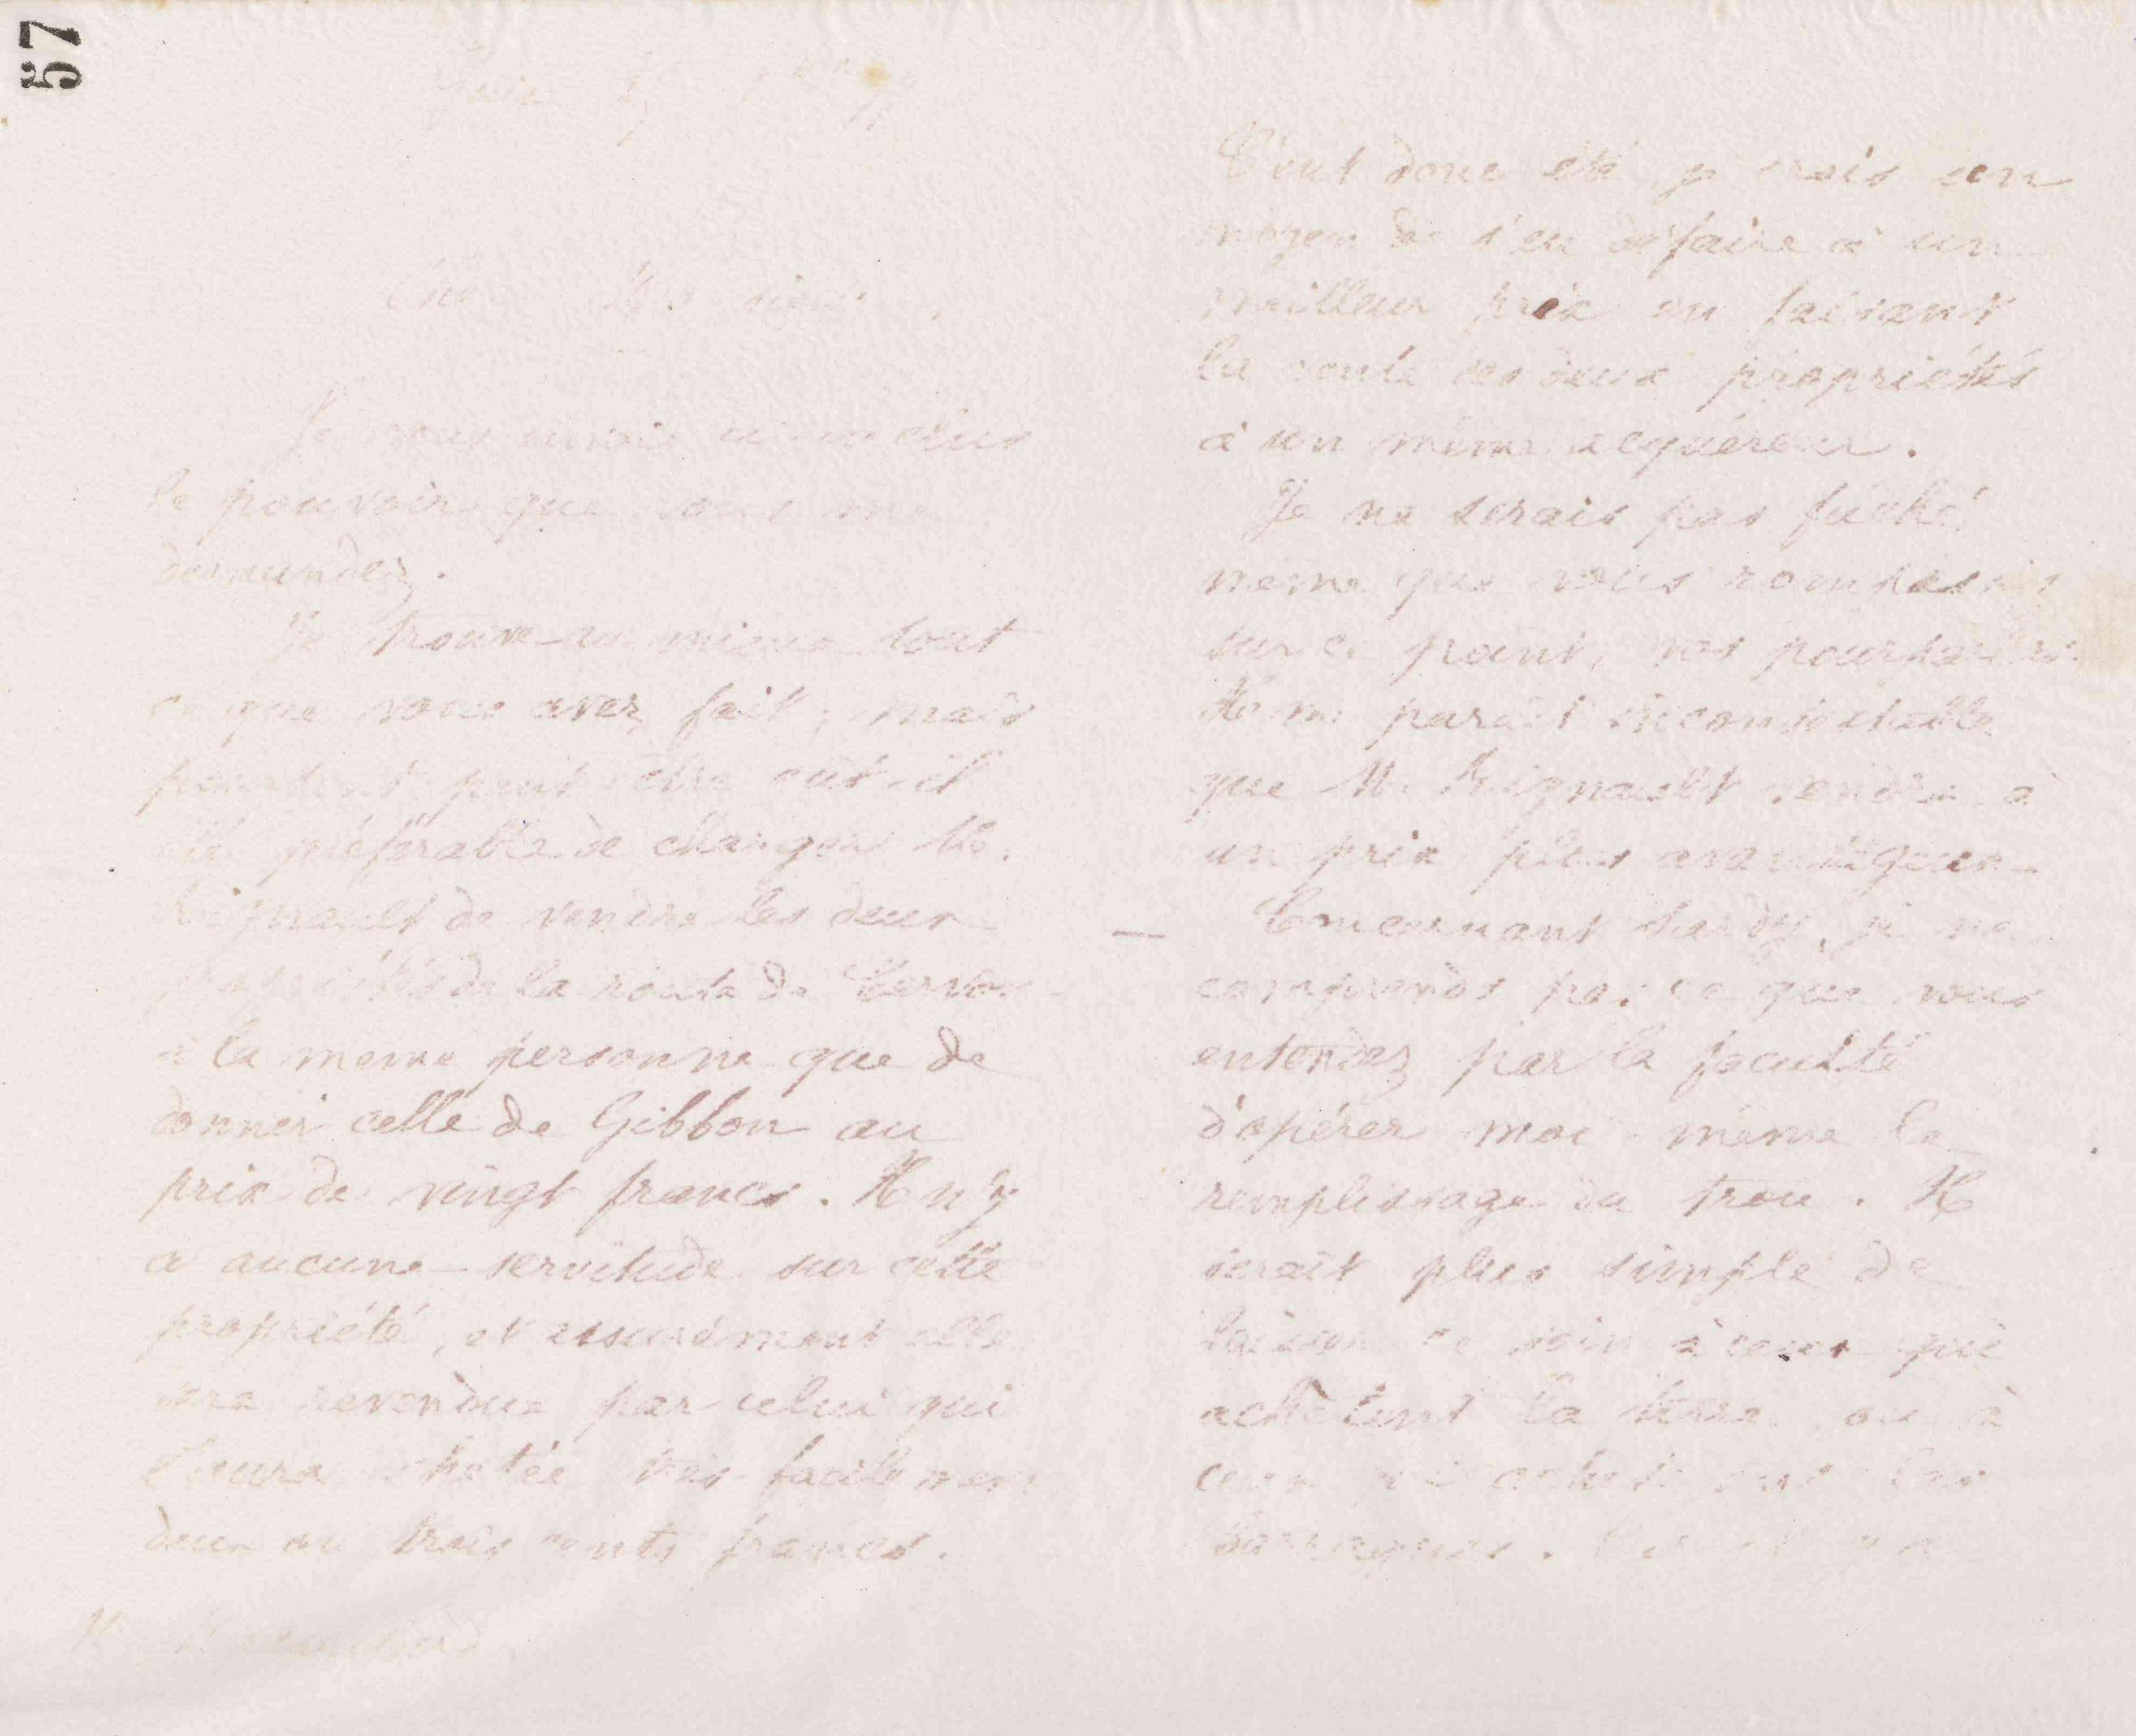 57
Cher Monsieur,
Je vous envoie ci-inclus
le pouvoir que vous me
demandez.
Je trouve au mieux tout
ce que vous avez fait, mais
pourtant peut-être eût-il
été préférable de charger M.
de vendre les deux
propriétés de la route de
à la même personne que de
donner celle de Gibbon au
prix de vingt francs. Il n'y
a aucune servitude sur cette
propriété, et assurément elle
sera revendue par celui qui
l'aura achetée très facilement
deux ou trois cents francs.
M.
C'eut donc été, je crois un
moyen de s'en défaire à un
meilleur prix en faisant
la vente des deux propriétés
à un même acquéreur.
Je ne serais pas fâché
même que vous rompissiez
sur ce point, vos pourparlers.
Il me parait incontestable
que M. vendra à
un prix plus avantageux.
— Concernant Hardy, je ne
comprends pas ce que vous
entendez par la faculté
d'opérer moi-même le
remplissage du trou. Il
serait plus simple de
laisser ce soin à ceux qui
achètent la terre ou à
ceux qui achètent les